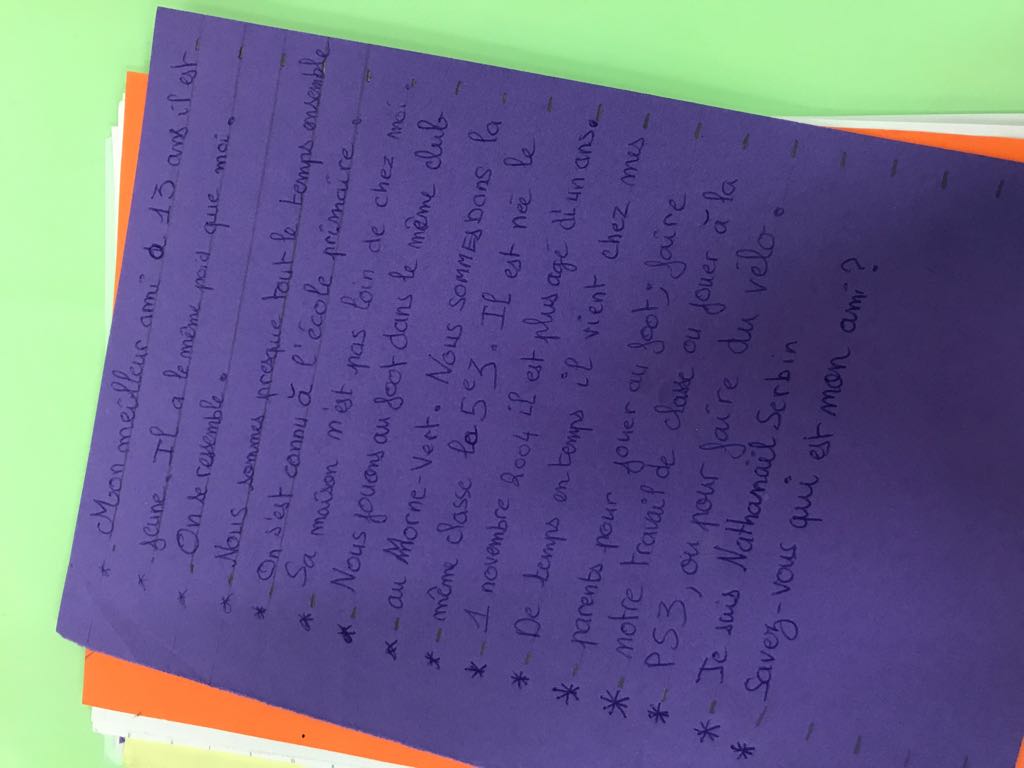 * - Mon meilleur ami a 13 ans il est
* - jaune. Il a le même poid que moi.
* - On se ressemble.
* - Nous sommes presque tout le temps ensemble
* - On s'est connu à l'école primaire.
* - Sa maison n'est pas loin de chez moi.
* - Nous jouons au foot dans le même club
* - au Morne-Vert. Nous SOMMES Dans la
* - même classe la 5e3. Il est née le
* - 1 novembre 2004 il est plus agé d'un ans.
* - De temps en temps il vient chez mes
* - parents pour jouer au foot, faire
* - notre travail de classe ou jouer à la
* - PS3, ou pour faire du vélo.
* - Je suis Nathanaël Serbin
* - Savez-vous qui est mon ami ?